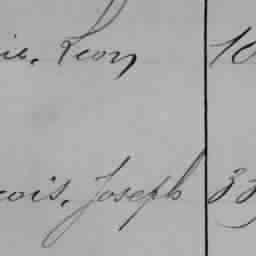 ie, Leon 10
cois, Joseph 33